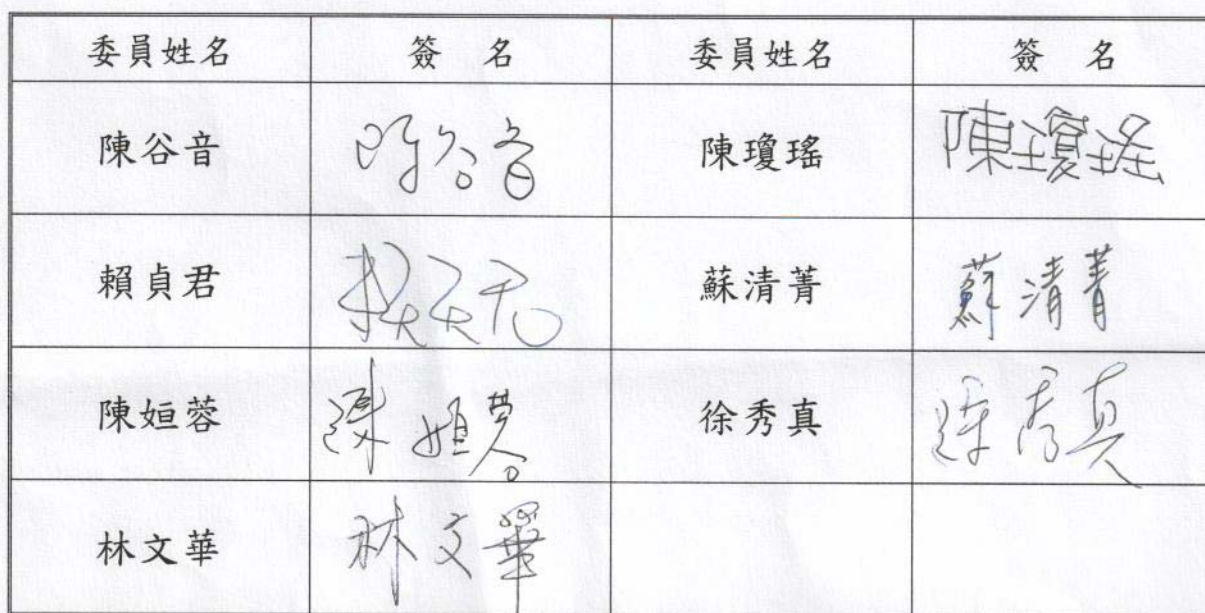 委員姓名 簽 名 委員姓名 簽 名
陳谷音 陳谷音 陳瓊瑤 陳瓊瑤
賴貞君 蘇清菁 蘇清菁
陳姮蓉 陳姮蓉 徐秀真 徐秀真
林文華 林文華